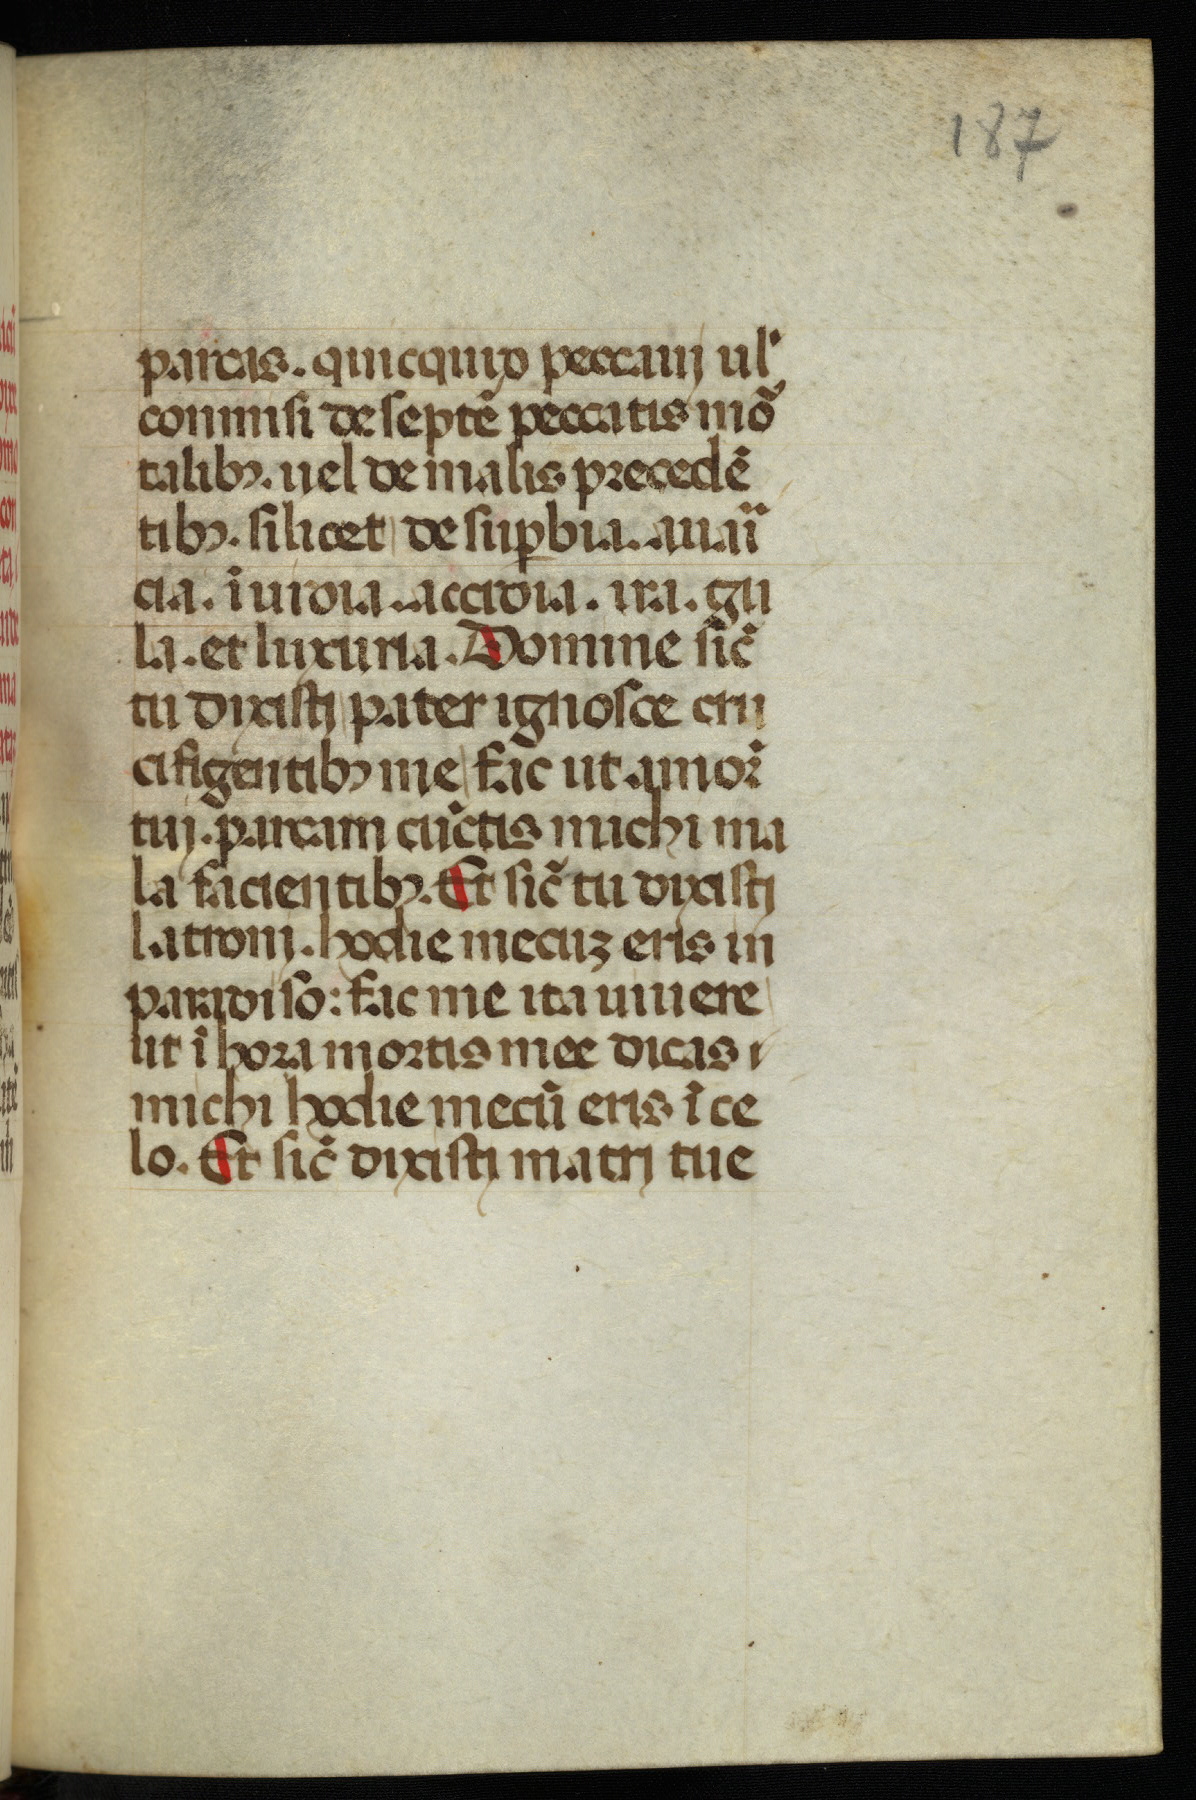 187
parcas. quicquid peccauj ul'
commisi de septē peccatis mō
talibꝫ. uel de malis precedē
tibꝫ. silicet de suꝑbia. auaii
cia. īuidia. accidia. ira. gu
la. et luxuria. Domine sic̄
tu dixisti pater ignosce cru
cifigentibꝫ me fac ut amor̄
tuj. parcam cūctis michi ma
la facientibꝫ. Et sic̄ tu dixisti
latroni. hodie mecuꝫ eris in
paradiso: fac me ita uiuere
ut ī hora mortis mee dicas
michi hodie mecū eris ī ce
lo. Et sic̄ dixisti matri tue